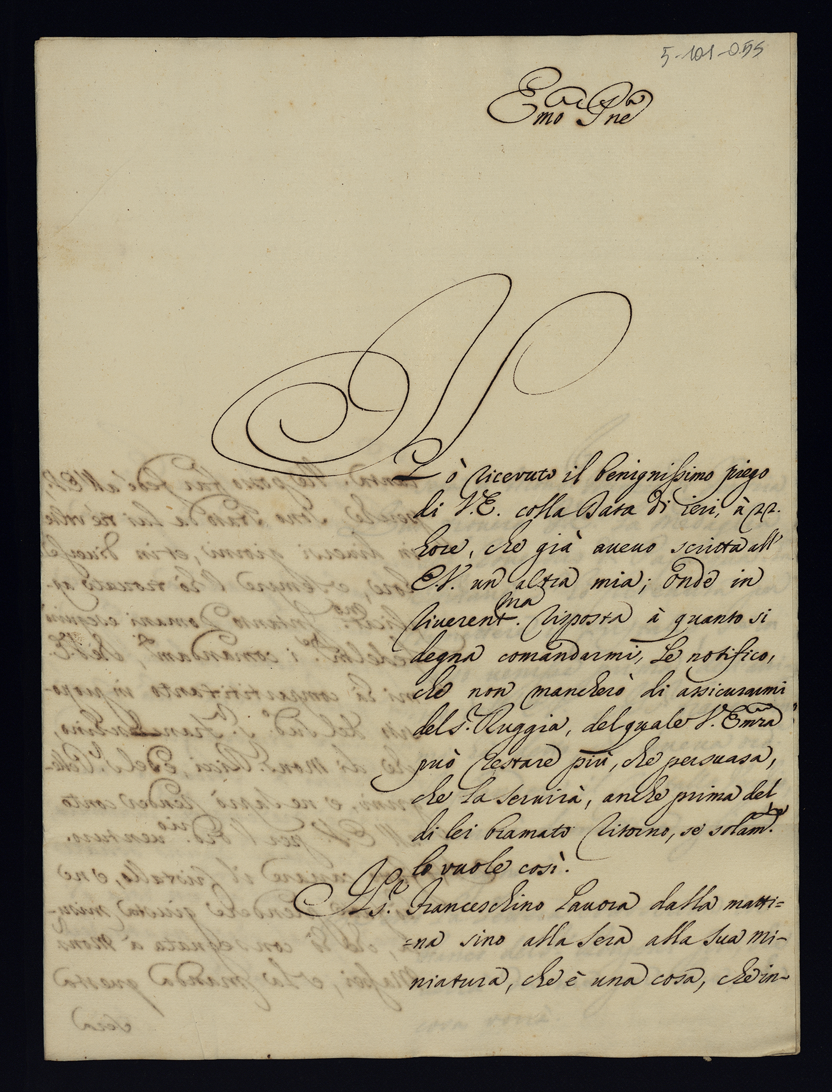 5-101-055
Emo Pne
Ò ricevuto il benignissimo piego
di V.E. colla Data di ieri, à 22.
hore, che già avevo scritta all'
E.V. un altra mia; onde in
riverentma. risposta à quanto si
degna comandarmi, Le notifico,
che non mancherò di assicurarmi
del Sr. Ruggia, del quale V. Emza
può restare più, che persuasa,
che La servirà, anche prima del
di lei bramato ritorno, se solamte.
lo vuole così.
Il Sr. Franceschino Lavora dalla matti=
=na sino alla sera alla sua mi-
niatura, che è una cosa, che in-